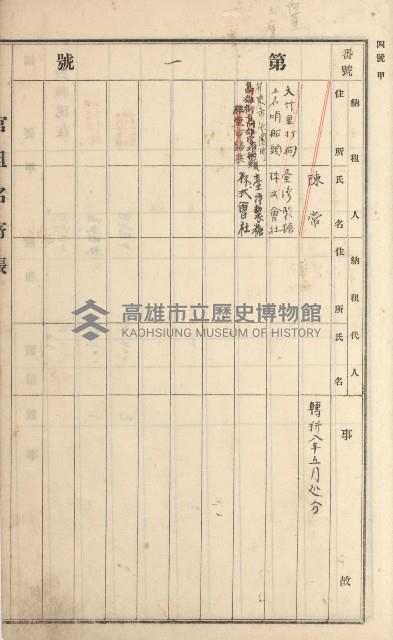 四號甲
番號
第一號
納租人
住所氏名
納租代人
住所氏名
事故
陳常
大竹里打狗
土名哨船頭
臺灣製糖
株式會社
屏東市
高雄街高雄字哨船頭
臺灣製糖
株式會社
轉耕八年五月处分
官租名寄帳
高雄市立歷史博物館
KAOHSIUNG MUSEUM OF HISTORY